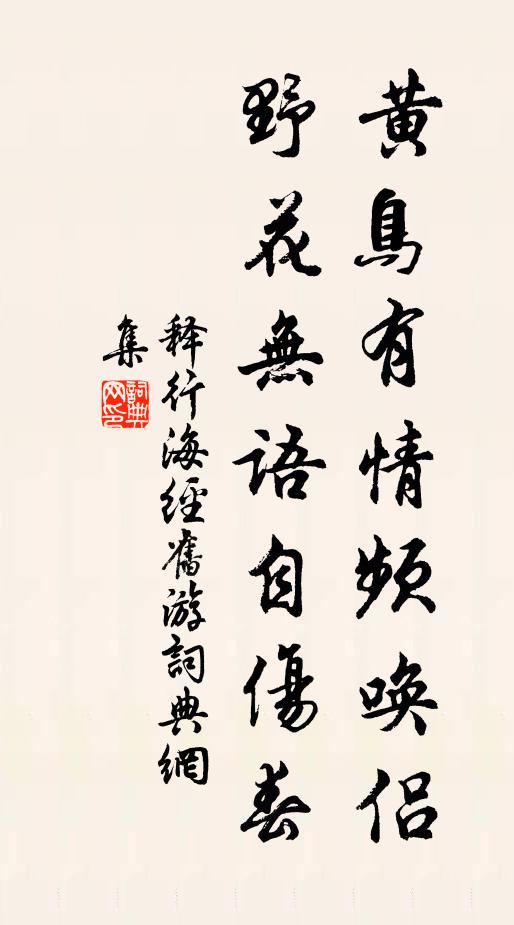 黃鳥有情頻喚侶
野花無語自傷春
释行海經舊游詞典網
集
詞典網印